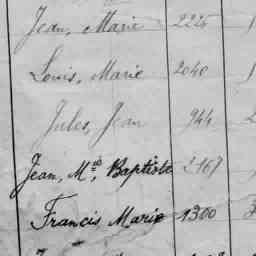 Jean, Marie 2225 1
Louis, Marie 2040 1
Jules, Jean 944
Jean, M.ie, Baptiste 2167
Francis Marie 1300 3